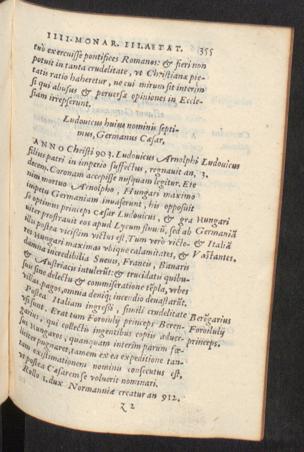 IIII. MONAR. III. AETAT. 355
tuò exercuisse pontifices Romanos: & fieri non
potuit in tanta crudelitate, vt Christianæ pie-
tatis ratio haberetur, ne cui mirum sit interim
si qui abusus & peruersæ opiniones in Eccle-
siam irrepserunt.
Ludouicus huius nominis septi-
mus, Germanus Cæsar.
ANNO Christi 903. Ludouicus Arnolphi Ludouicus
filius patri in imperio suffectus, regnauit an, 3.
decem. Coronam accepisse nusquam legitur. Eto
nim mortuo Arnolpho, Hungari maximo
impetu Germaniam inuaserunt, his opposuit
se optimus princeps Cæsar Ludouicus, & Hungari
iter prostrauit eos apud Lycum sed ab Germaniã
illis postea vicissim victus est, Tum verò victo- & Italiã
res Hungari maximas vbique calamitates, & Vastantes.
damna incredibilia Sueuis, Francis, Bauaris
& Austriacis intulerũt: & trucidatis quibus-
sine delectu & commiseratione tẽpla, vrbes
pagos, omnia deniq; incendio deuastarũt.
Postea Italiam ingressi, simili crudelitate Berẽgarius
vsi sunt. Erat tum Foroiulij princeps Beren- Foroiulij
garius, qui collectis ingentibus copijs aduer- princeps.
sus Hungaros, quanquam interim parum fœ-
liciter pugnaret, tamen ex ea expeditione tan-
tam existimationem nominis consecutus est,
vt postea Cæsarem se voluerit nominari.
Rollo I. dux Normanniæ creatur an 912.
z 2